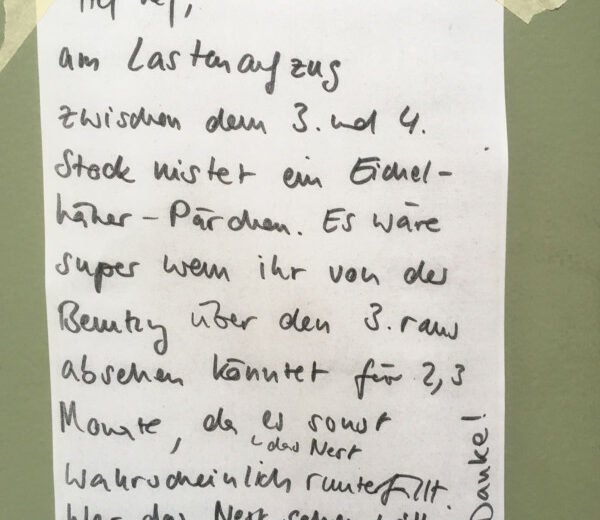 am Lastenaufzug
zwischen dem 3. und 4.
Stock nistet ein Eichel-
häher - Pärchen. Es wäre
super wenn ihr von der
Benutzg über den 3. raus
absehen könntet für 2,3
Monate, da es sonst
das Nest
wahrscheinlich runterfällt.
Wer das Nest sehen will
Danke!